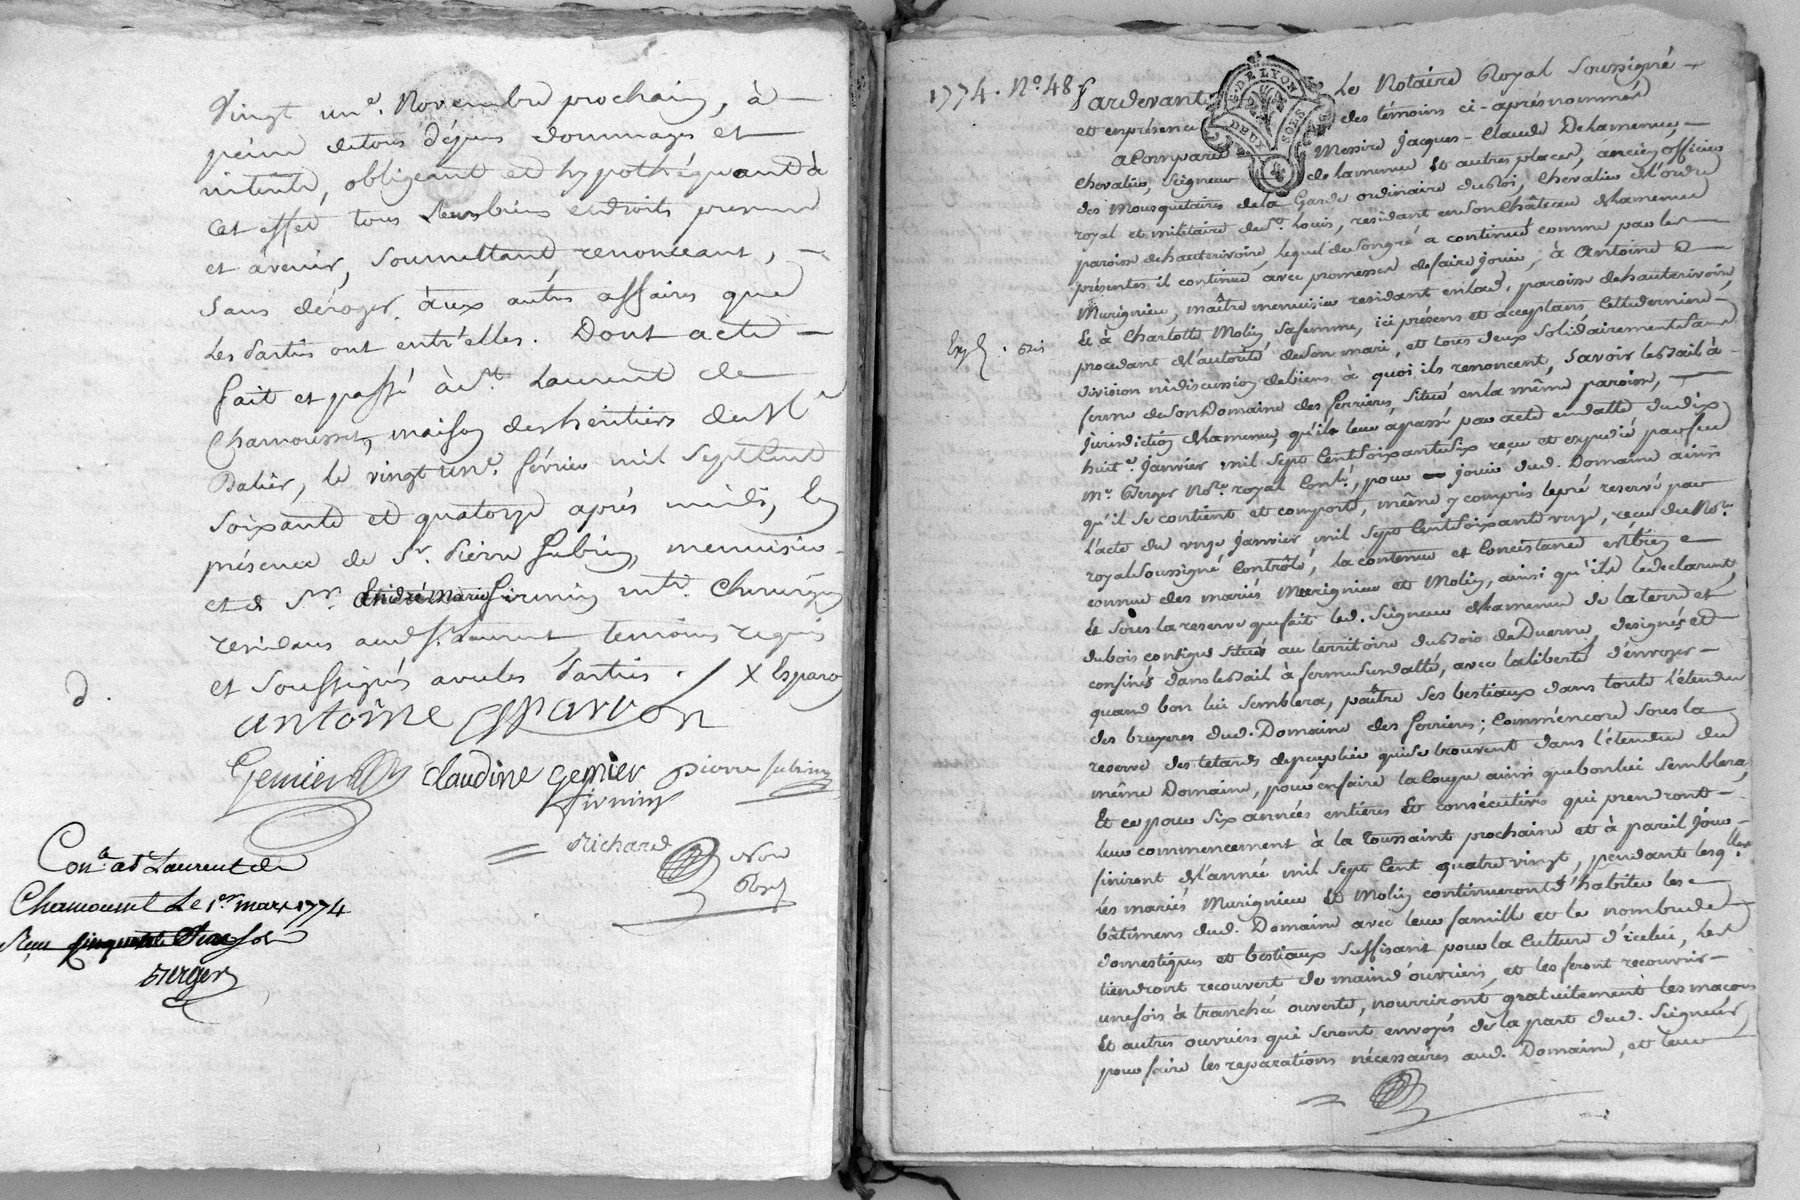 Vingt un.e Novembre prochain, à
peine de tous dépens dommages et
intérêts, obligeant et hypothéquant à
cet effet tous leurs biens et droits présens
et avenir, soumettant renonceant,
sans déroger aux autres affaires que
les parties ont entr'elles. Dont acte
fait et passé à St. Laurent de
Chamousset, maison des héritiers de Me
Dalier, le vingt un.e février mil sept cent
soixante et quatorze après midi, En
présence de Sr. Pierre Subrin, menuisier
et de Sr. andré marie firmin mtre. Chirurgien
residans aud. St. Laurent temoins requis
et soussignés avec les parties. X Esparon
antoîne esparron
Genier claudine genier pierre subrin
firmin
Richard
Nore
Royl
d.
Con.lé a St Laurent de
Chamousset Le 1er mars 1774
Reçu cinquante sols
Berger
1774. No. 48
Expd. bris
Pardevant Le Notaire Royal soussigné
G. DE LYON DEUX SOLS
et en présence des témoins ci-après nommés
a Comparu Messire Jacques-Claude Dehamenue,
Chevalier, Seigneur de lamenue et autres places, ancien officier
des Mousquetaires de la Garde ordinaire du Roi, Chevalier de l'ordre
royal et militaire de St. Louis, residant en son Château d'hamenue
paroisse de hauterivoire, lequel de son gré a continué comme par les
présentes il continue avec promesse de faire jouir, à Antoine
Murignieu, maître menuisier residant en lad. paroisse de hauterivoire,
Et à Charlotte Molin sa femme, ici présens et acceptans cette derniere
procedant de l'autorité de son mari, et tous deux solidairement sans
division ni discussion de biens à quoi ils renoncent, savoir le Bail à
ferme de son Domaine des ferrieres, situé en la même paroisse,
Jurisdiction d'hamenue, qu'il leur a passé par acte en datte du dix
huit.e Janvier mil sept cent soixante six reçu et expedié par feu
Me. Berger Nore. royal Conlé., pour jouir dud. Domaine ainsi
qu'il se contient et comporte, même y compris le pré reservé par
l'acte du onze Janvier mil sept cent soixante onze, reçu du Nore.
royal soussigné Contrôlé, la contenue et Concistance est bien
connue des mariés Murignieu et Molin, ainsi qu'ils le declarent,
Et sous la reserve que fait led. Seigneur d'hamenue de la terre et
du bois contigus situés au territoire du bois de Duerne, designés et
confinés dans le Bail à ferme susdatté, avec la liberté d'envoyer
quand bon lui semblera, paître ses bestiaux dans toute l'étendue
des bruyeres dud. Domaine des ferrieres; Comme encore sous la
reserve des tetards de peuplier qui se trouvent dans l'étendue du
même Domaine, pour en faire la Coupe ainsi que bon lui semblera,
Et ce pour six années entières et consécutives qui prendront
leur commencement à la Toussaint prochaine et à pareil jour
finiront de l'année mil sept cent quatre vingt, pendant lesqlles.
les mariés Murignieu et Molin continueront d'habiter les
bâtimens dud. Domaine avec leur famille et le nombre de
domestiques et bestiaux suffisant pour la Culture d'icelui, les
tiendront recouvert de main d'ouvriers, et les feront recouvrir
une fois à tranche ouverte, nourriront gratuitement les maçons
Et autres ouvriers qui seront envoyés de la part dud. Seigneur,
pour faire les reparations nécessaires aud. Domaine, et leur